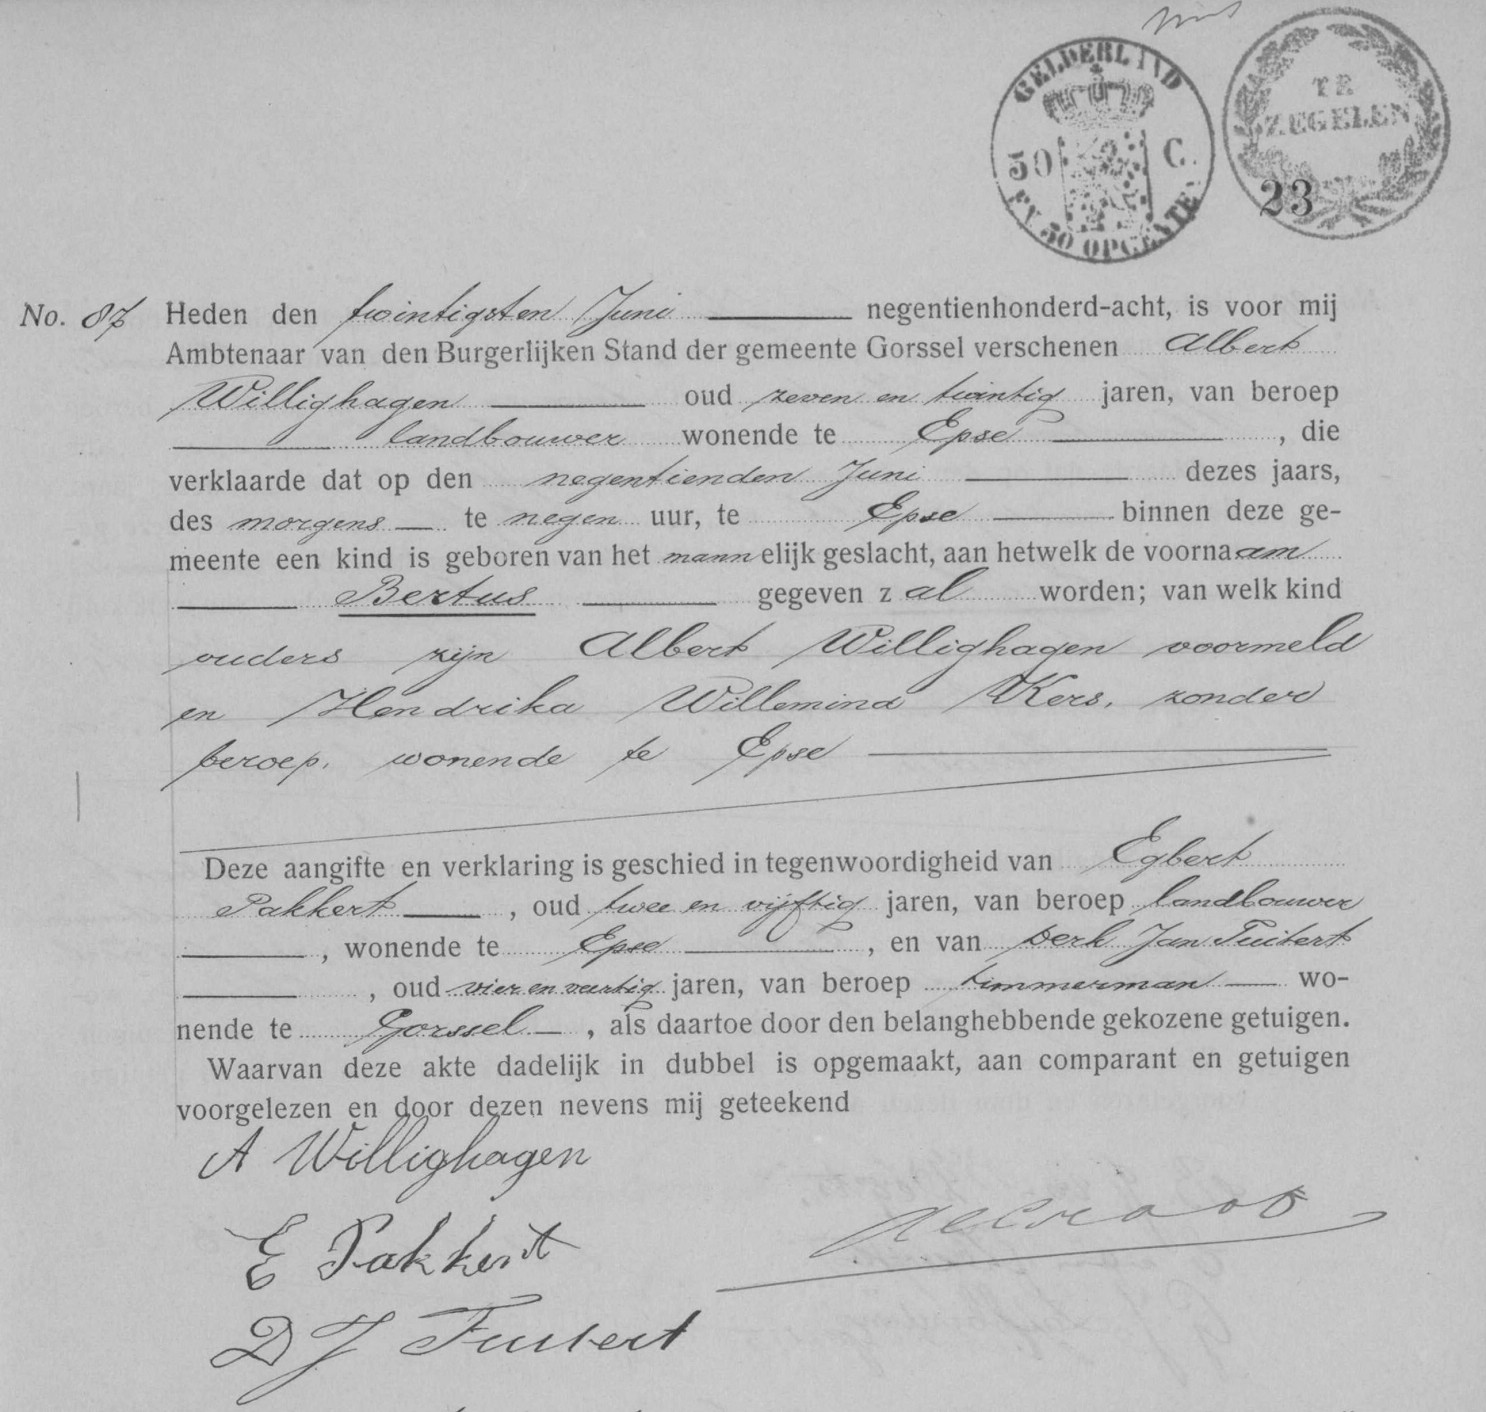 GELDERLAND
50 C.
EN 50 OPCENTEN
TE
ZEGELEN
23
No. 87 Heden den twintigsten Juni negentienhonderd-acht, is voor mij
Ambtenaar van den Burgerlijken Stand der gemeente Gorssel verschenen Albert
Willighagen oud zeven en twintig jaren, van beroep
landbouwer wonende te Epse, die
verklaarde dat op den negentienden Juni dezes jaars,
des morgens te negen uur, te Epse binnen deze ge-
meente een kind is geboren van het mannelijk geslacht, aan hetwelk de voornaam
Bertus gegeven zal worden; van welk kind
ouders zijn Albert Willighagen voormeld
en Hendrika Willemina Kers, zonder
beroep, wonende te Epse
Deze aangifte en verklaring is geschied in tegenwoordigheid van Egbert
Pakkert, oud twee en vijftig jaren, van beroep landbouwer
, wonende te Epse, en van Derk Jan Tuitert
, oud vier en veertig jaren, van beroep timmerman wo-
nende te Gorssel, als daartoe door den belanghebbende gekozene getuigen.
Waarvan deze akte dadelijk in dubbel is opgemaakt, aan comparant en getuigen
voorgelezen en door dezen nevens mij geteekend
A Willighagen
E Pakkert
D J Tuitert